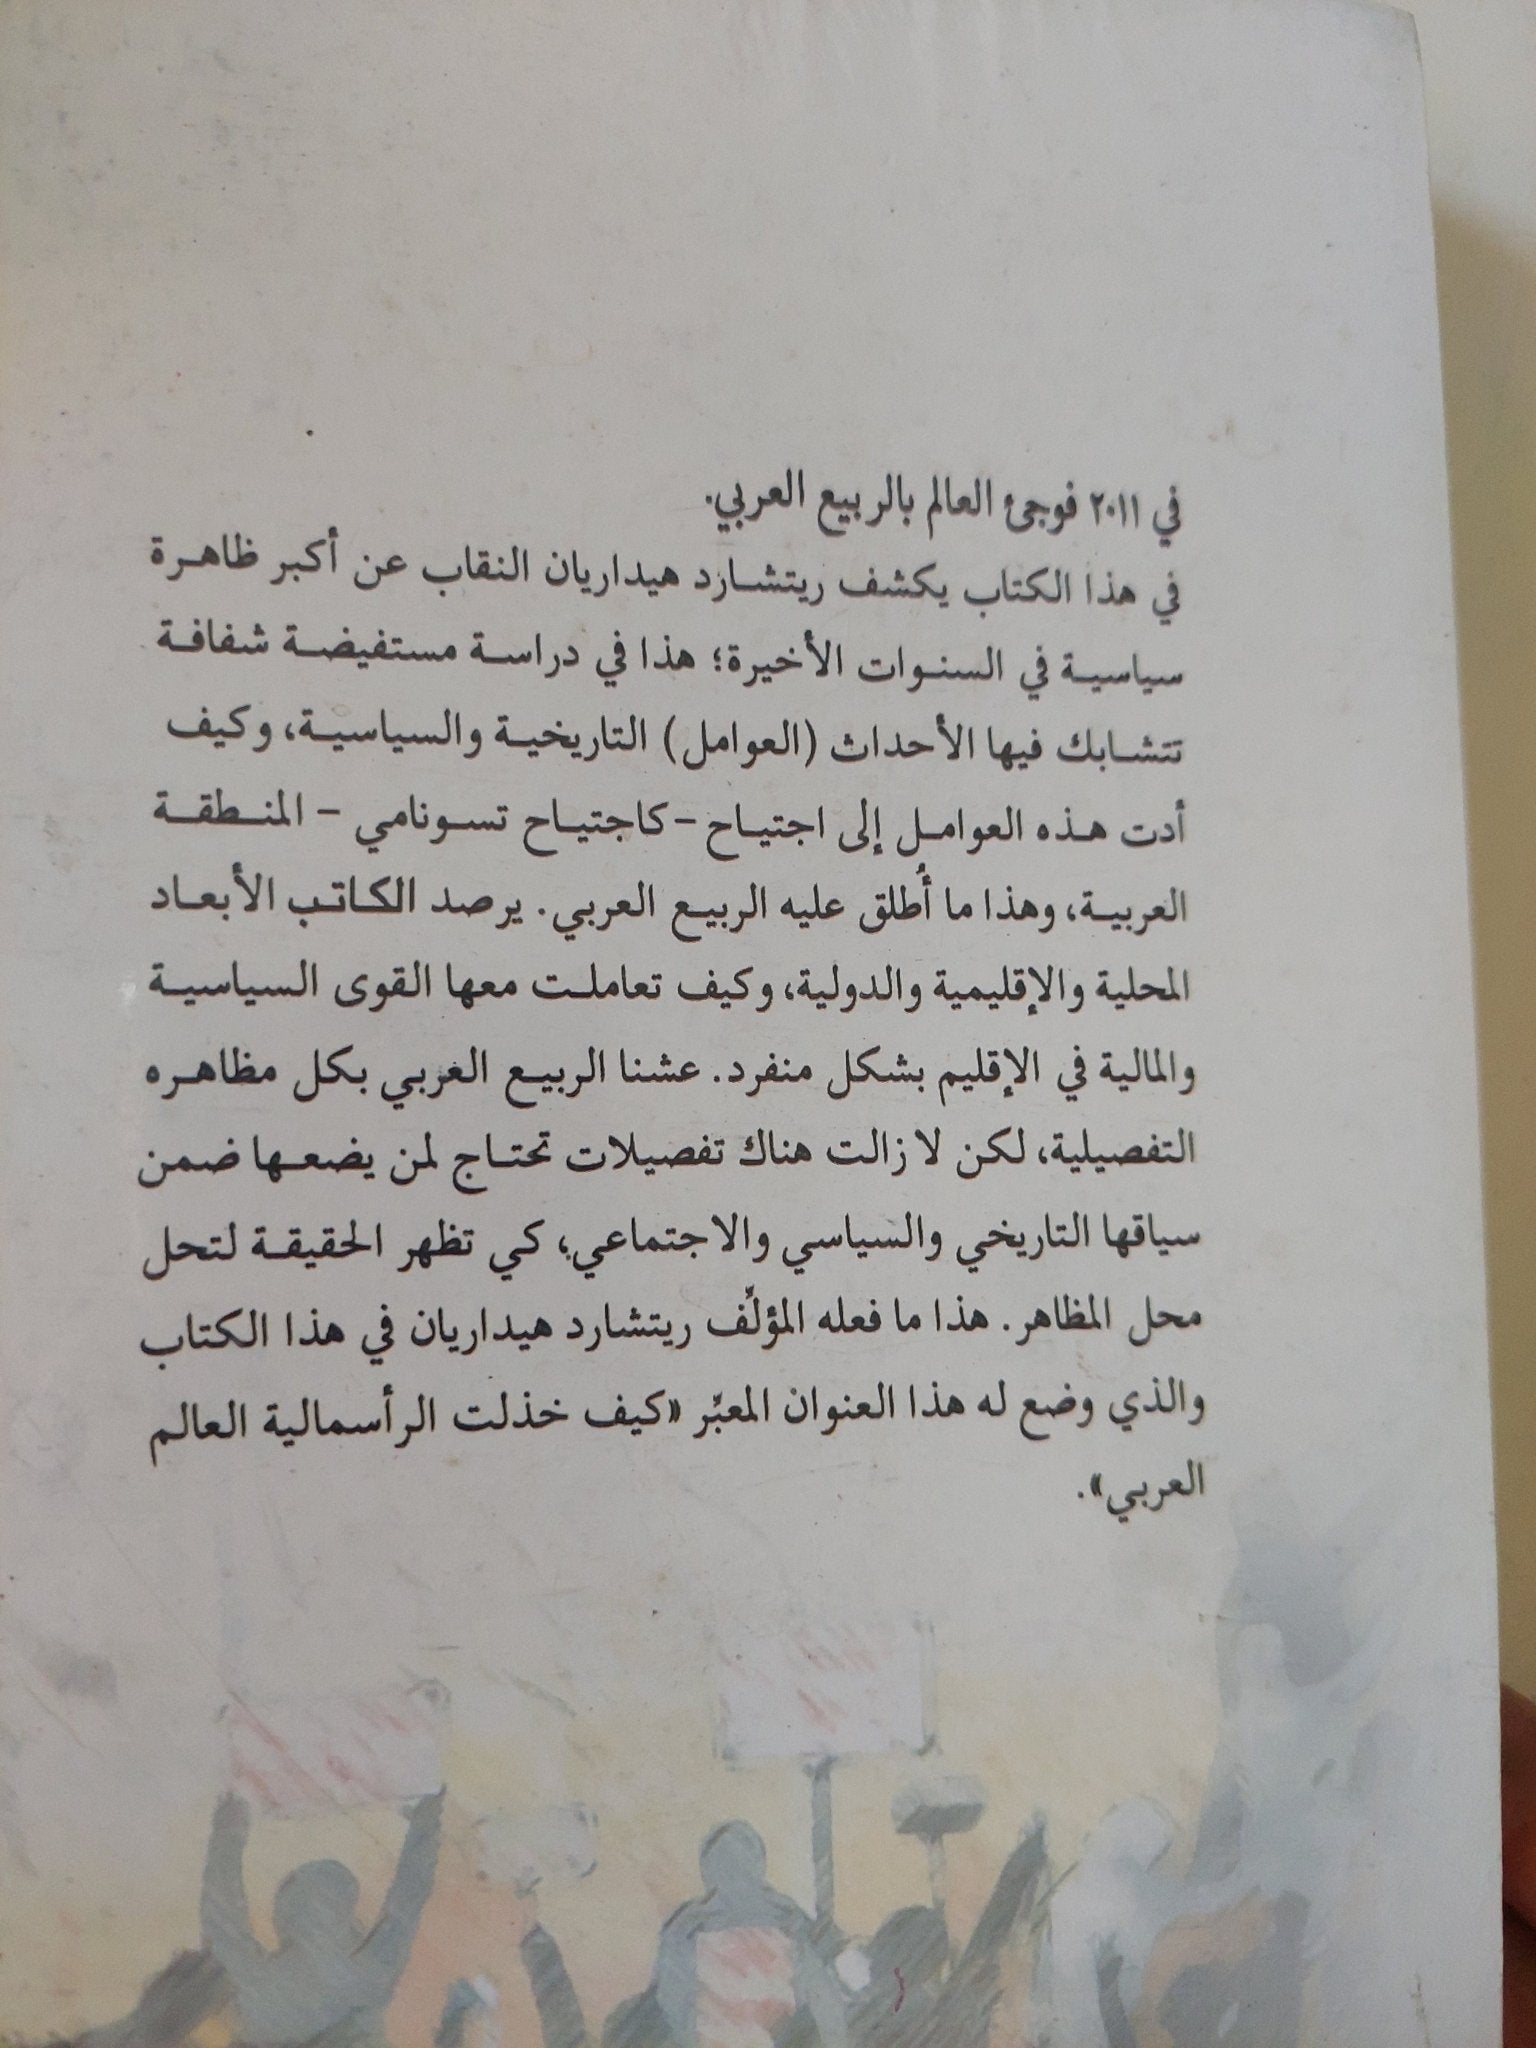 في ٢٠١١ فوجئ العالم بالربيع العربي.
في هذا الكتاب يكشف ريتشارد هيداريان النقاب عن أكبر ظاهرة
سياسية في السنوات الأخيرة؛ هذا في دراسة مستفيضة شفافة
تتشابك فيها الأحداث (العوامل) التاريخية والسياسية، وكيف
أدت هذه العوامل إلى اجتياح -كاجتياح تسونامي - المنطقة
العربية، وهذا ما أُطلق عليه الربيع العربي. يرصد الكاتب الأبعاد
المحلية والإقليمية والدولية، وكيف تعاملت معها القوى السياسية
والمالية في الإقليم بشكل منفرد. عشنا الربيع العربي بكل مظاهره
التفصيلية، لكن لا زالت هناك تفصيلات تحتاج لمن يضعها ضمن
سياقها التاريخي والسياسي والاجتماعي؛ كي تظهر الحقيقة لتحل
محل المظاهر. هذا ما فعله المؤلِّف ريتشارد هيداريان في هذا الكتاب
والذي وضع له هذا العنوان المعبِّر «كيف خذلت الرأسمالية العالم
العربي».